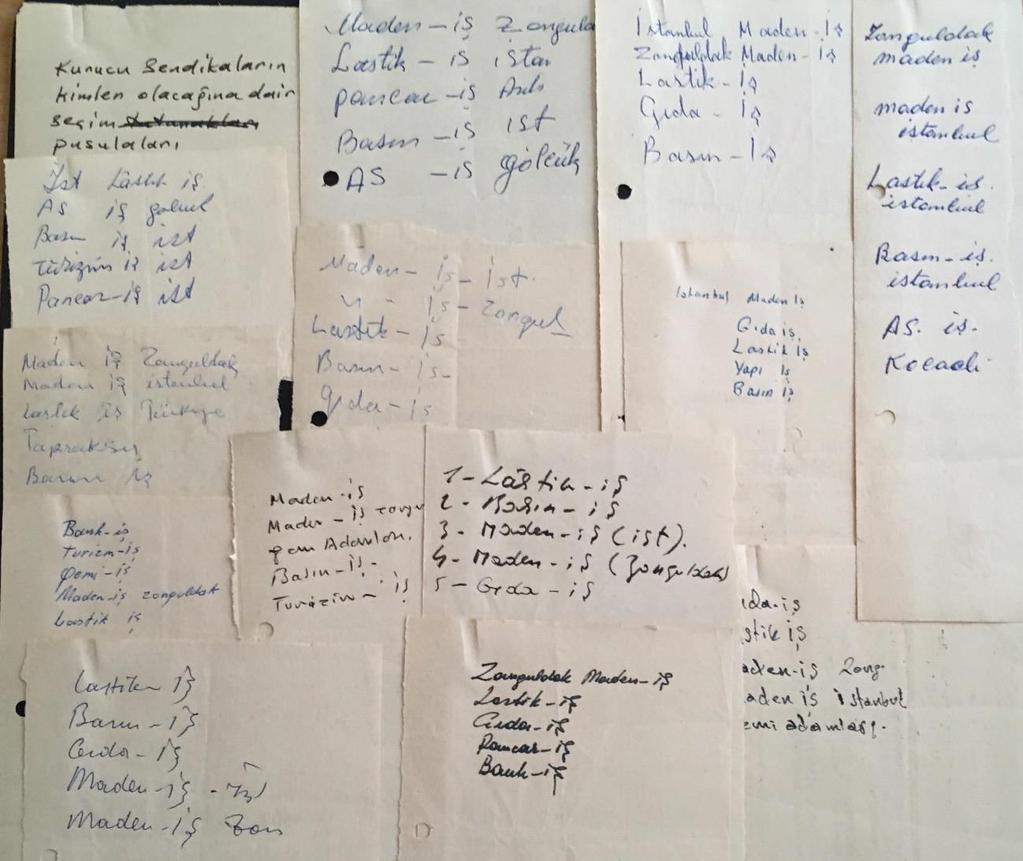 Kurucu Sendikaların
kimlen olacağına dair
seçim tutanakları
pusulaları
Maden-iş Zongulda
Lastik-iş istan
pancar-iş Ank
Basın-iş ist
AS -iş gölcük
İstanbul Maden-İş
Zonguldak Maden-İş
Lastik-İş
Gıda-İş
Basın-İş
Zonguldak
maden iş
maden iş
istanbul
Lastik-iş.
istanbul
Basın-iş.
istanbul
AS. iş.
Kocaeli
İst Lâstik iş.
AS iş gölcük
Basın iş ist
Turizim iş ist
Pancar-iş ist
Maden-iş-ist.
" - iş-Zongul
Lastik-iş
Basın-iş-
Gıda-iş
İstanbul Maden İş
Gıda iş
Lastik İş
Yapı İş
Basın İş
Maden iş Zonguldak
Maden iş istanbul
Lastik iş Türkiye
Topraksu
Basın İş
Bank-iş
turizm-iş
Gemi-iş
Maden-iş zonguldak
Lastik iş
Maden-iş
Maden-iş zongu
gem Adamları.
Basın-iş-
Turizim-iş
1-Lâstik-iş
2-Basın-iş
3-Maden-iş (ist).
4-Maden-iş (Zonguldak)
5-Gıda-iş
ıda-iş
stik iş
aden-iş Zong.
aden iş istanbul
emi adamları.
Lastik-İş
Basın-İş
Gıda-İş
Maden-iş-İst
Maden-iş Zon
Zonguldak Maden-iş
Lastik-iş
Gıda-iş
Pancar-iş
Bank-iş